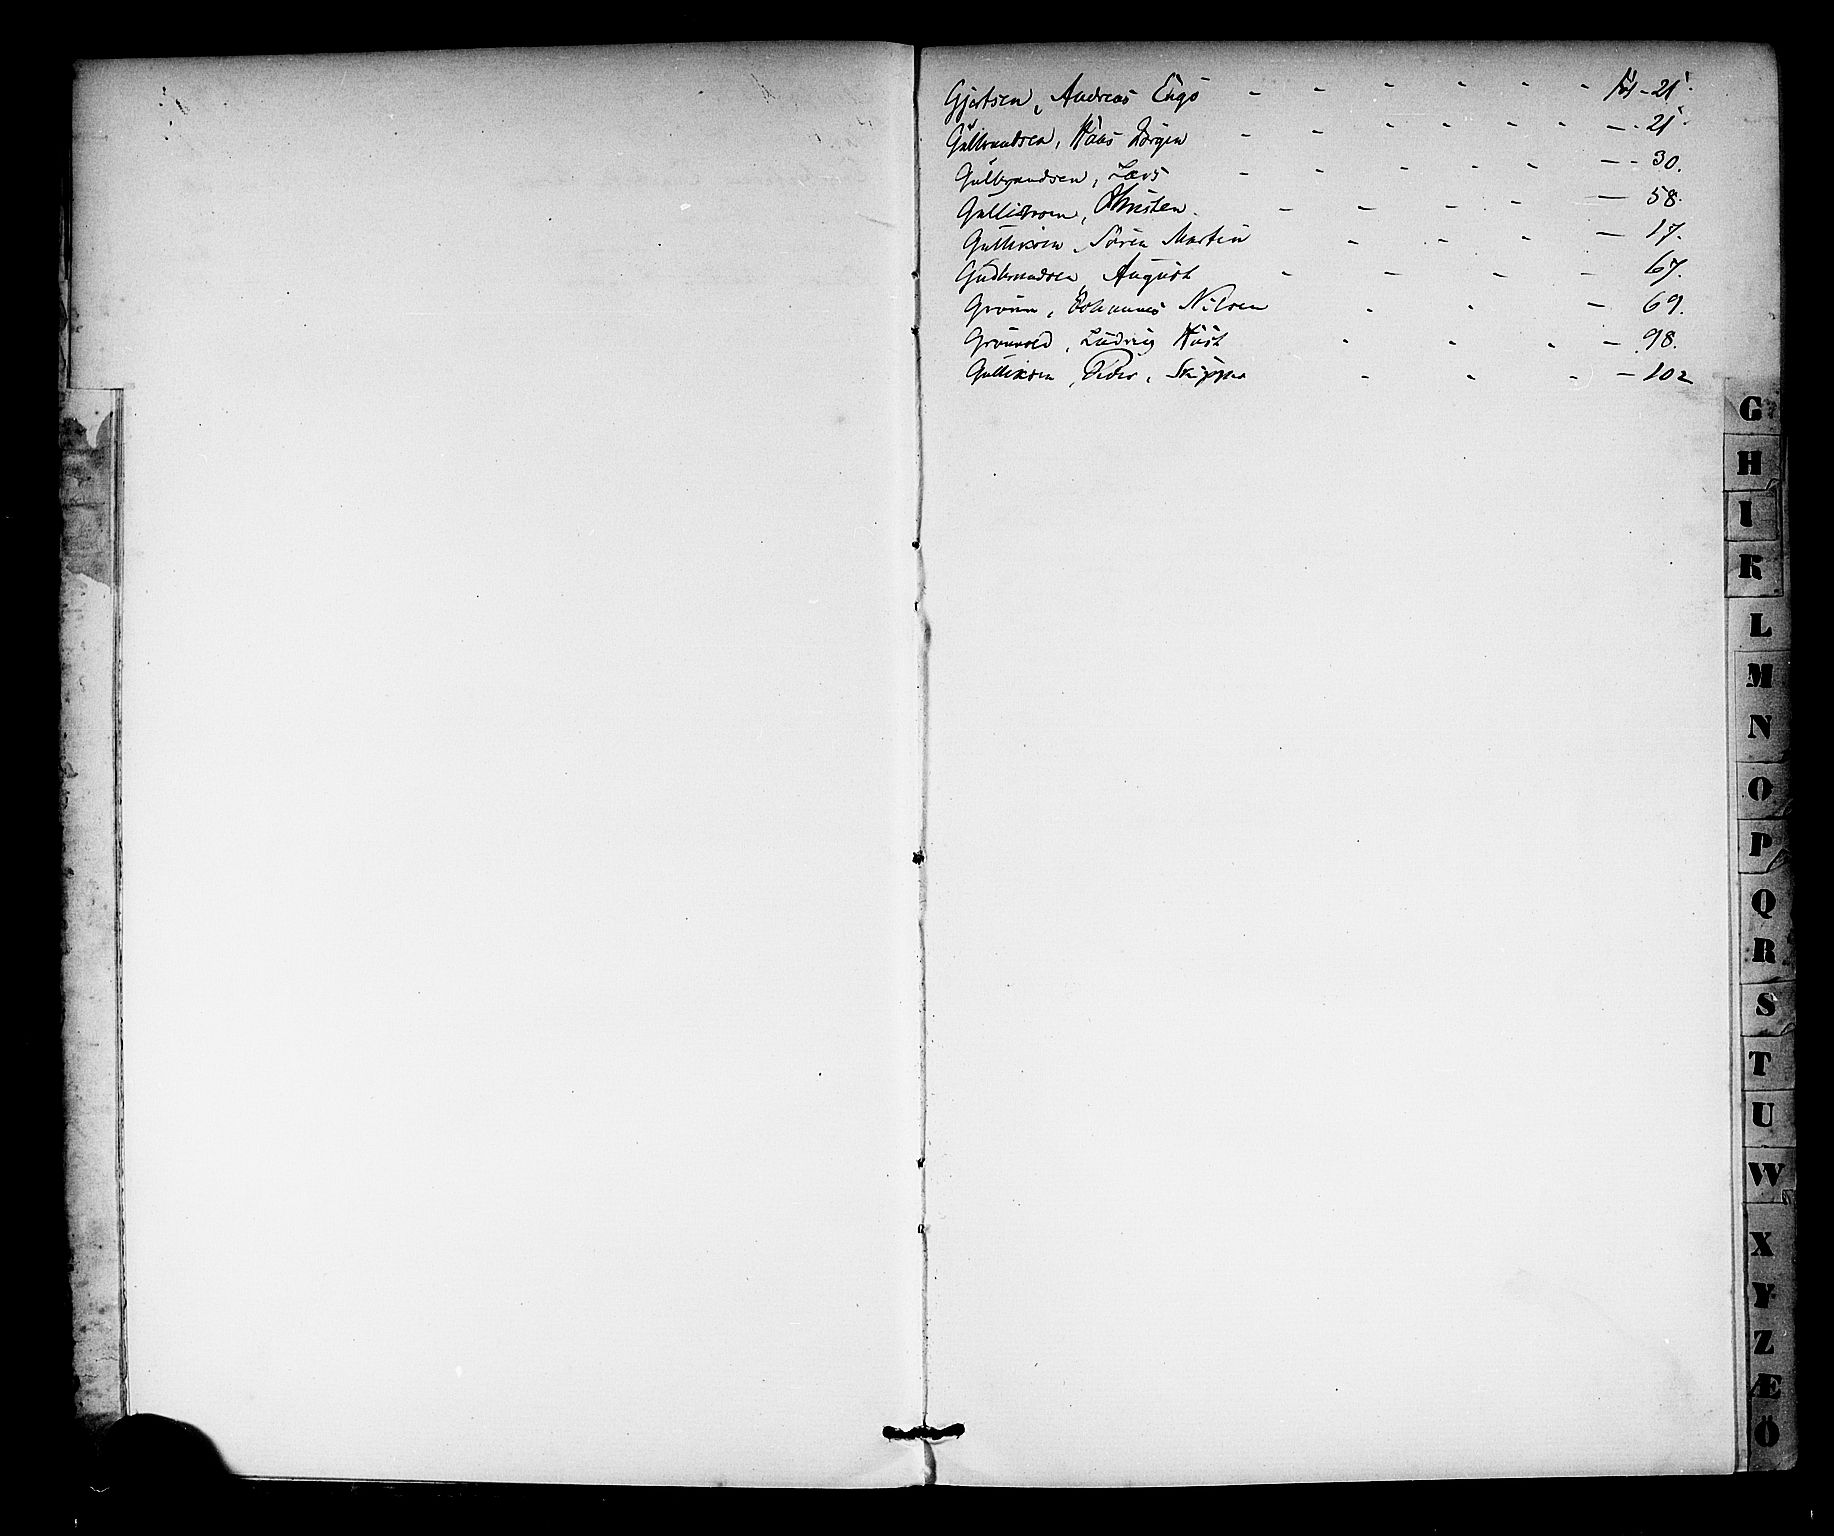 Gjertsen, Andreas Engo - - - - - - Fol - 21.
Gulbrandsen, Hans Jørgen - - - - - - — - 21.
Gulbrandsen, Lars - - - - - — - 30.
Gullichsen, Christen. - - - - — 58.
Gulliksen, Søren Martin - - - — 17.
Gudbrandsen August - - - - 67.
Grønn, Johannes Nilsen - - — 69.
Grønvold, Ludvig Høst - - - — 98.
Gulliksen, Peder, Skipper - - - — 102
G
H
I
K
L
M
N
O
P
Q
R
S
T
U
W
X
Y
Z
Æ
Ö